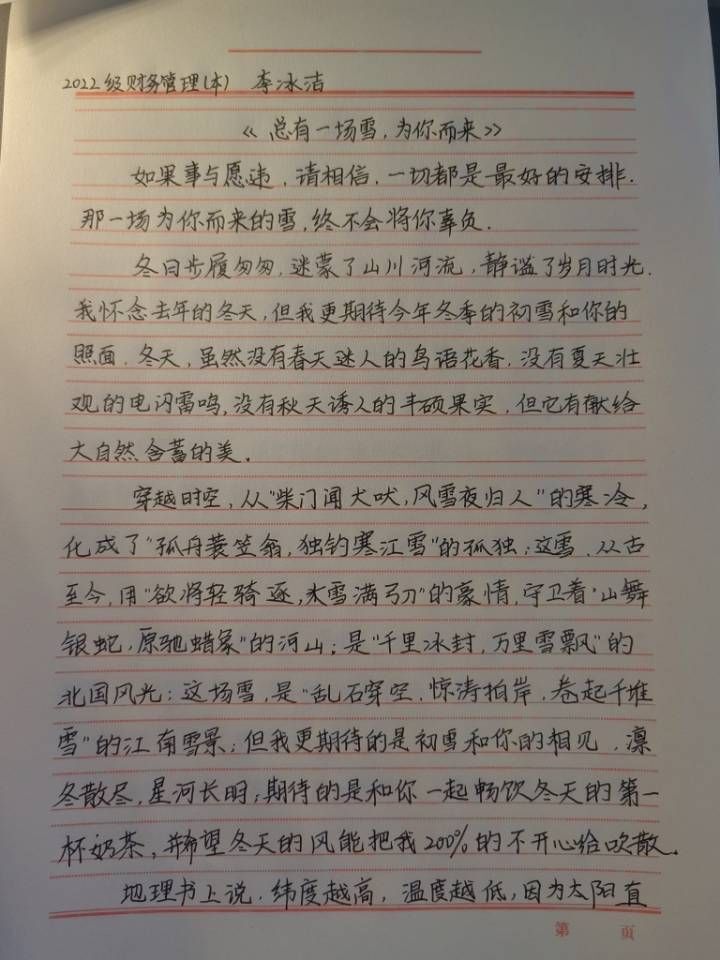 2022级财务管理(本) 李冰洁
《总有一场雪,为你而来》
如果事与愿违,请相信,一切都是最好的安排.
那一场为你而来的雪,终不会将你辜负.
冬日步履匆匆,迷蒙了山川河流,静谧了岁月时光.
我怀念去年的冬天,但我更期待今年冬季的初雪和你的
照面.冬天,虽然没有春天迷人的鸟语花香,没有夏天壮
观的电闪雷鸣,没有秋天诱人的丰硕果实,但它有献给
大自然含蓄的美.
穿越时空,从"柴门闻犬吠,风雪夜归人"的寒冷,
化成了"孤舟蓑笠翁,独钓寒江雪"的孤独;这雪,从古
至今,用"欲将轻骑逐,大雪满弓刀"的豪情,守卫着"山舞
银蛇,原驰蜡象"的河山;是"千里冰封,万里雪飘"的
北国风光;这场雪,是"乱石穿空,惊涛拍岸,卷起千堆
雪"的江南雪景;但我更期待的是初雪和你的相见,凛
冬散尽,星河长明;期待的是和你一起畅饮冬天的第一
杯奶茶,并希望冬天的风能把我200%的不开心给吹散.
地理书上说.纬度越高,温度越低,因为太阳直
第 页